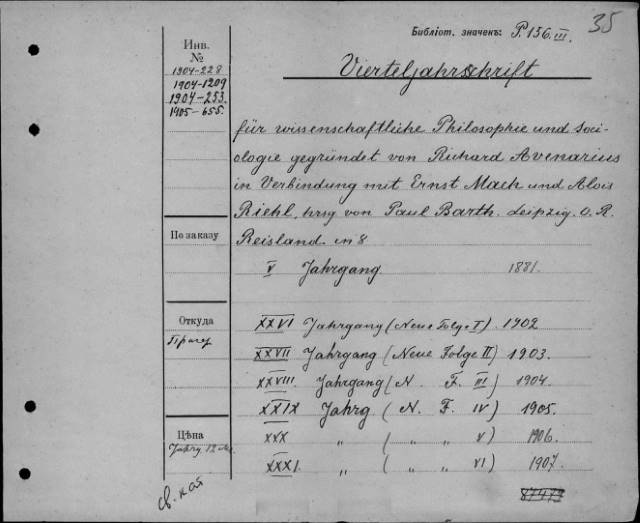 35
Библіот. значекъ: P.156.III.
Инв.
№
1904-228
1904-1209
1904-253.
1905-655.
Vierteljahrsschrift
für wissenschaftliche Philosophie und Soci-
ologie gegründet von Richard Avenarius
in Verbindung mit Ernst Mach und Alois
Riehl, hrsg von Paul Barth. Leipzig. O. R.
Reisland in 8
По заказу
V Jahrgang 1881.
Откуда
Прагер
XXVI Jahrgang (Neue Folge I) 1902
XXVII Jahrgang (Neue Folge II) 1903.
XXVIII Jahrgang (N. F. III) 1904.
XXIX Jahrg (N. F. IV) 1905.
Цѣна
Jahrg 12 M.
XXX „ („ „ V) 1906.
XXXI. „ („ „ VI) 1907.
св. кат